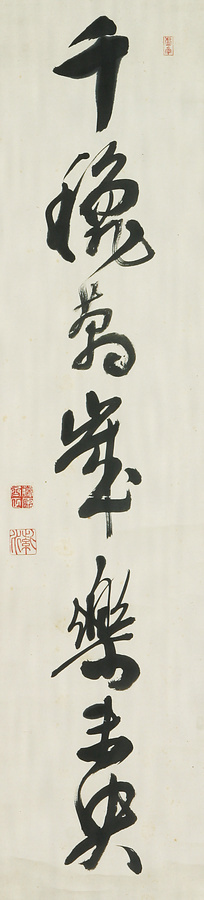 千穐萬歳樂未央